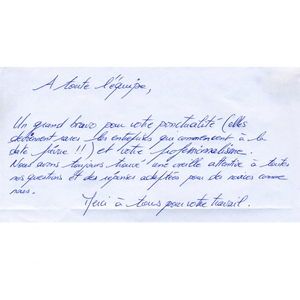 A toute l'équipe,
Un grand bravo pour votre ponctualité (elles
deviennent rares les entreprises qui commencent à la
date prévue !!!) et votre professionnalisme.
Nous avons toujours trouvé une oreille attentive à toutes
nos questions et des réponses adaptées pour des novices comme
nous.
Merci à tous pour votre travail.